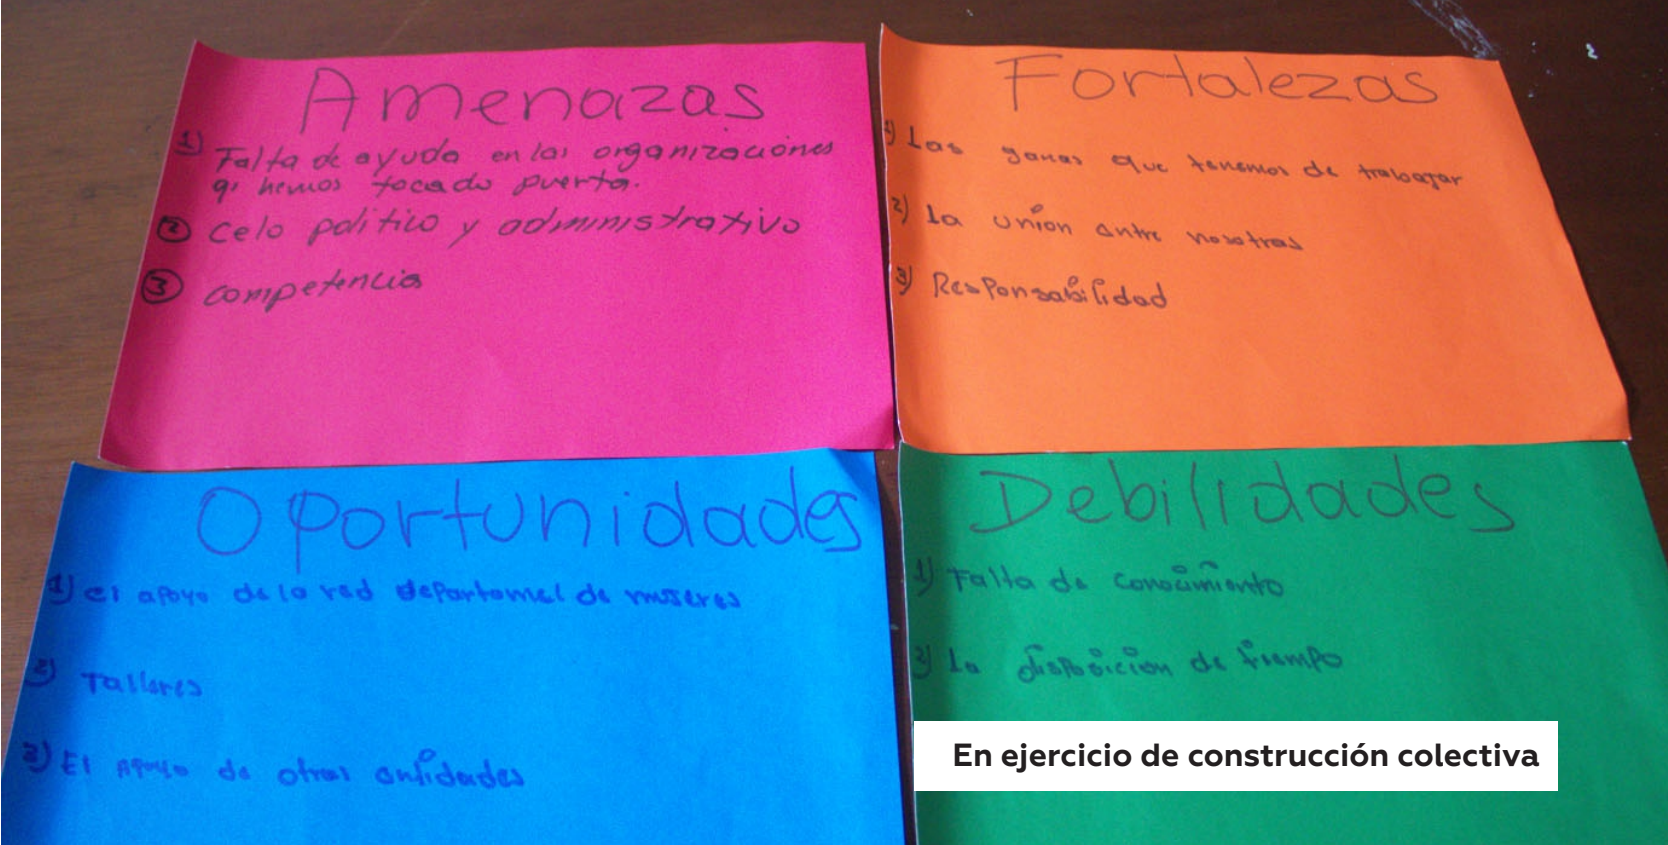 Amenazas
1) Falta de ayuda en las organizaciones
q' hemos tocado puerta.
2 Celo político y administrativo
3 competencia
Fortalezas
1) Las ganas que tenemos de trabajar
2) La unión entre nosotras
3) Responsabilidad
Oportunidades
1) el apoyo de la red departamel de mujeres
2) Talleres
3) El apoyo de otras entidades
Debilidades
1) Falta de conocimiento
2) La disposición de tiempo
En ejercicio de construcción colectiva